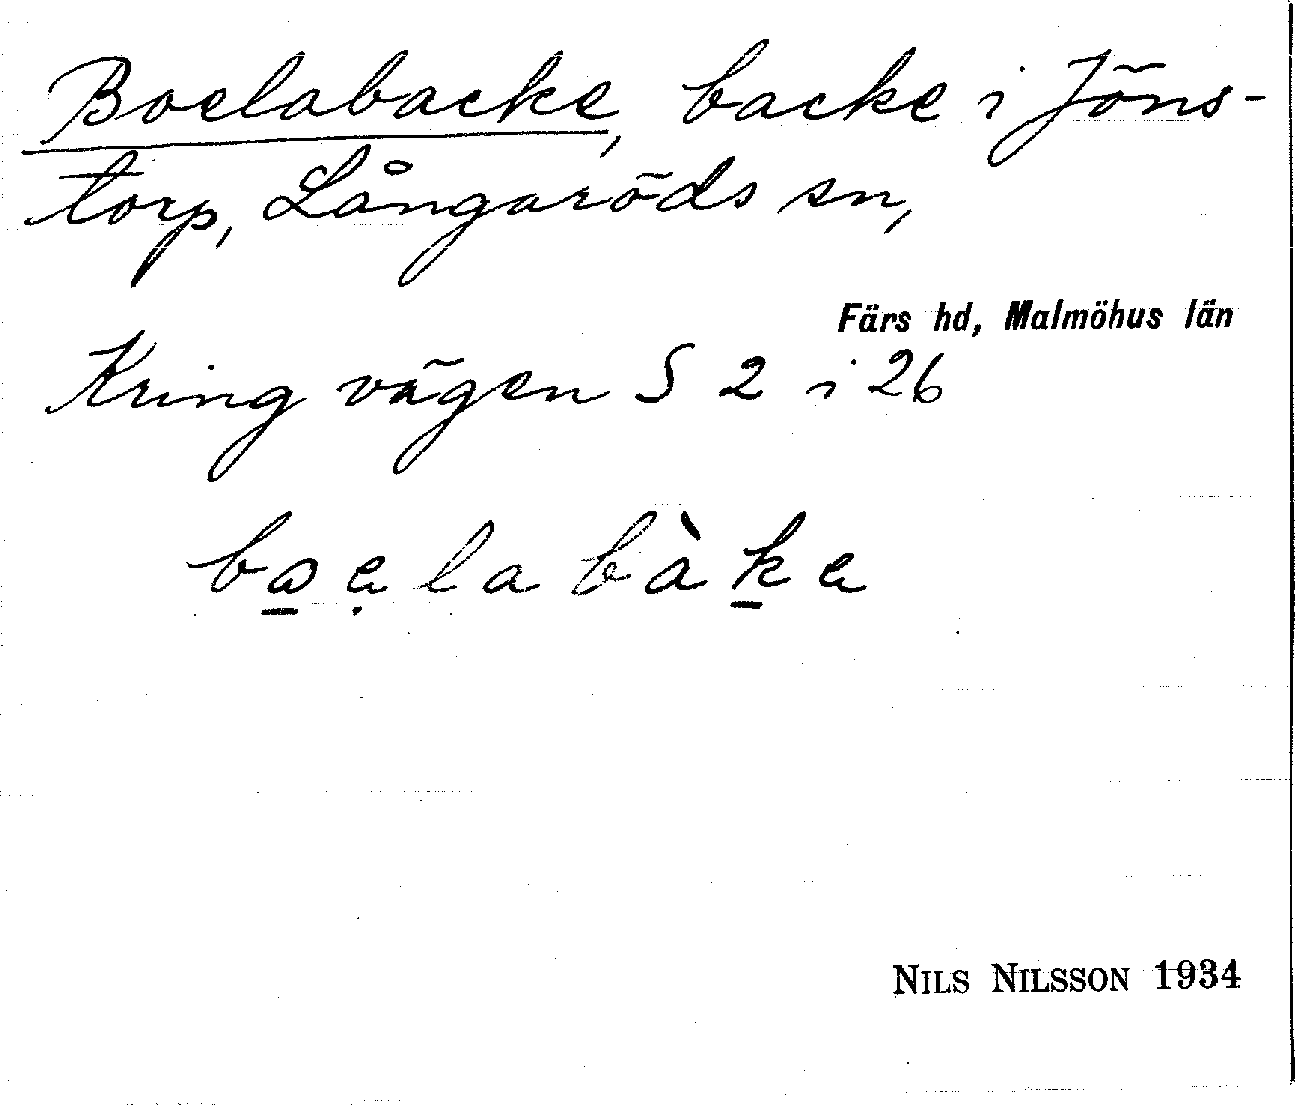 Boelabacke, backe i Jöns-
torp, Långaröds sn,
Färs hd, Malmöhus län
Kring vägen S 2 i 26
bo̲ẹlabàk̲e
NILS NILSSON 1934